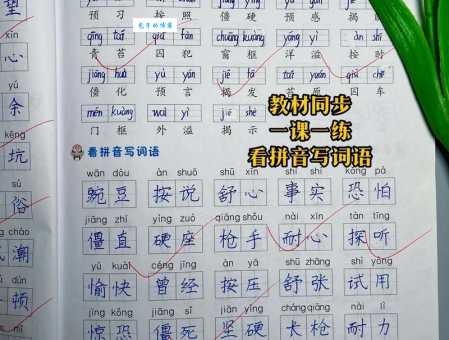 预 习 按 照 僵 硬 预 感 揭
qīng tái qiú fàn chuāng kuàng yáng yì àn shí
青 苔 囚 犯 窗 框 洋 溢 按 时
jiāng huà yù yán jiē fā tái qiú chē
僵 化 预 言 揭 发 苔 原 囚 车
mén kuàng wài yì jiē shì
门 框 外 溢 揭 示
看拼音写词语
wān dòu àn shuō shū xīn shì shí kǒng pà
豌 豆 按 说 舒 心 事 实 恐 怕
jiāng zhí yìng zuò qiāng shǒu nài xīn tàn tīng
僵 直 硬 座 枪 手 耐 心 探 听
yú kuài céng jīng àn yā shū zhāng shì yòng
愉 快 曾 经 按 压 舒 张 试 用
jīng kǒng jiāng sǐ jiān yìng cháng qiāng nài lì
惊 恐 僵 死 坚 硬 长 枪 耐 力
望
xīn
心
yú
余
kēng
坑
sú
俗
cháo
潮
dùn
顿
教材同步
一课一练
看拼音写词语